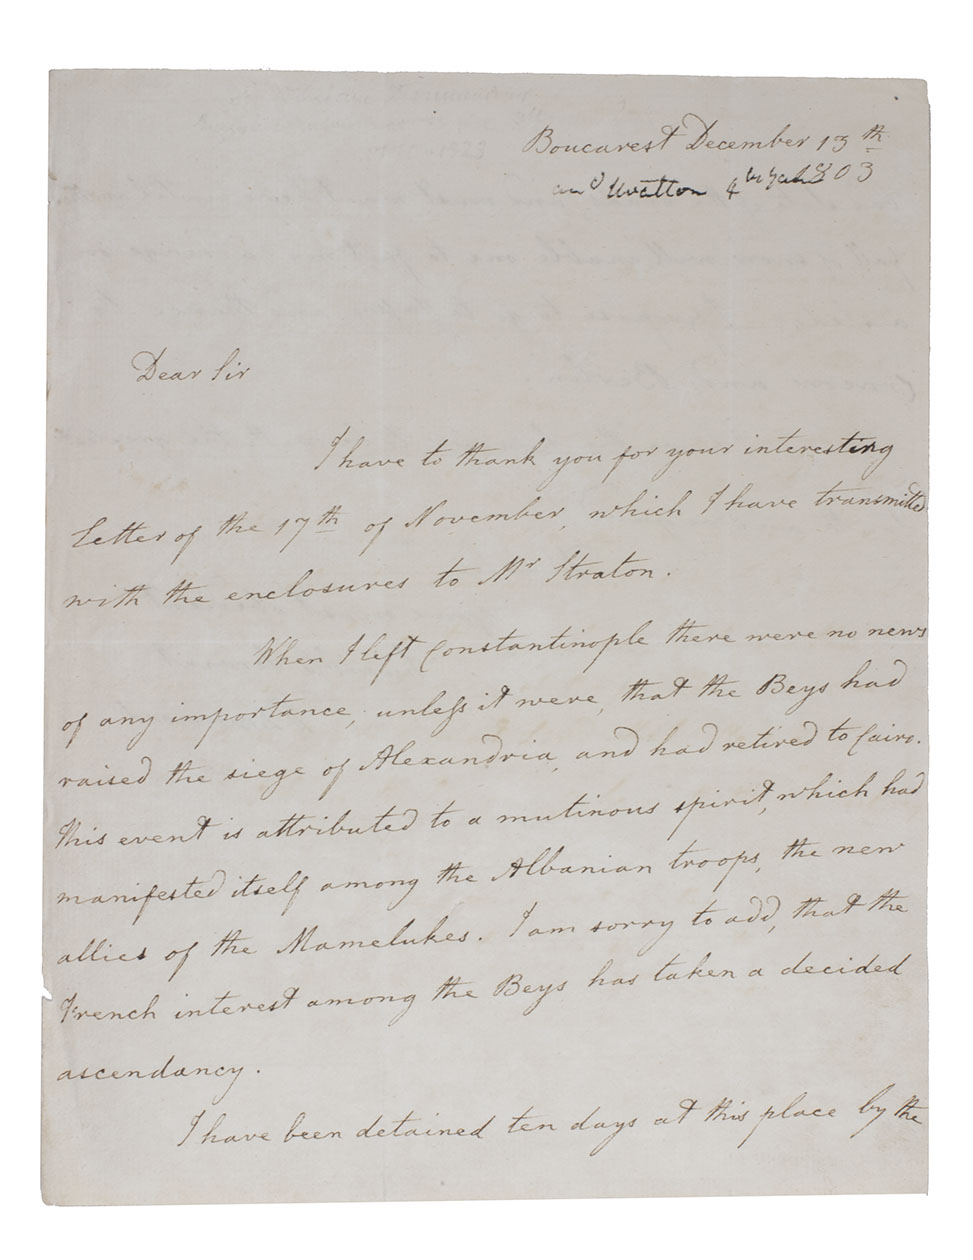 Boucarest December 13th
and Stratton 4 1803
Dear Sir
I have to thank you for your interesting
Letter of the 17th of November, which I have transmitted
with the enclosures to Mr Straton.
When I left Constantinople there were no news
of any importance, unless it were, that the Beys had
raised the siege of Alexandria, and had retired to Cairo.
This event is attributed to a mutinous spirit, which had
manifested itself among the Albanian troops, the new
allies of the Mamelukes. I am sorry to add, that the
French interest among the Beys has taken a decided
ascendancy.
I have been detained ten days at this place by the